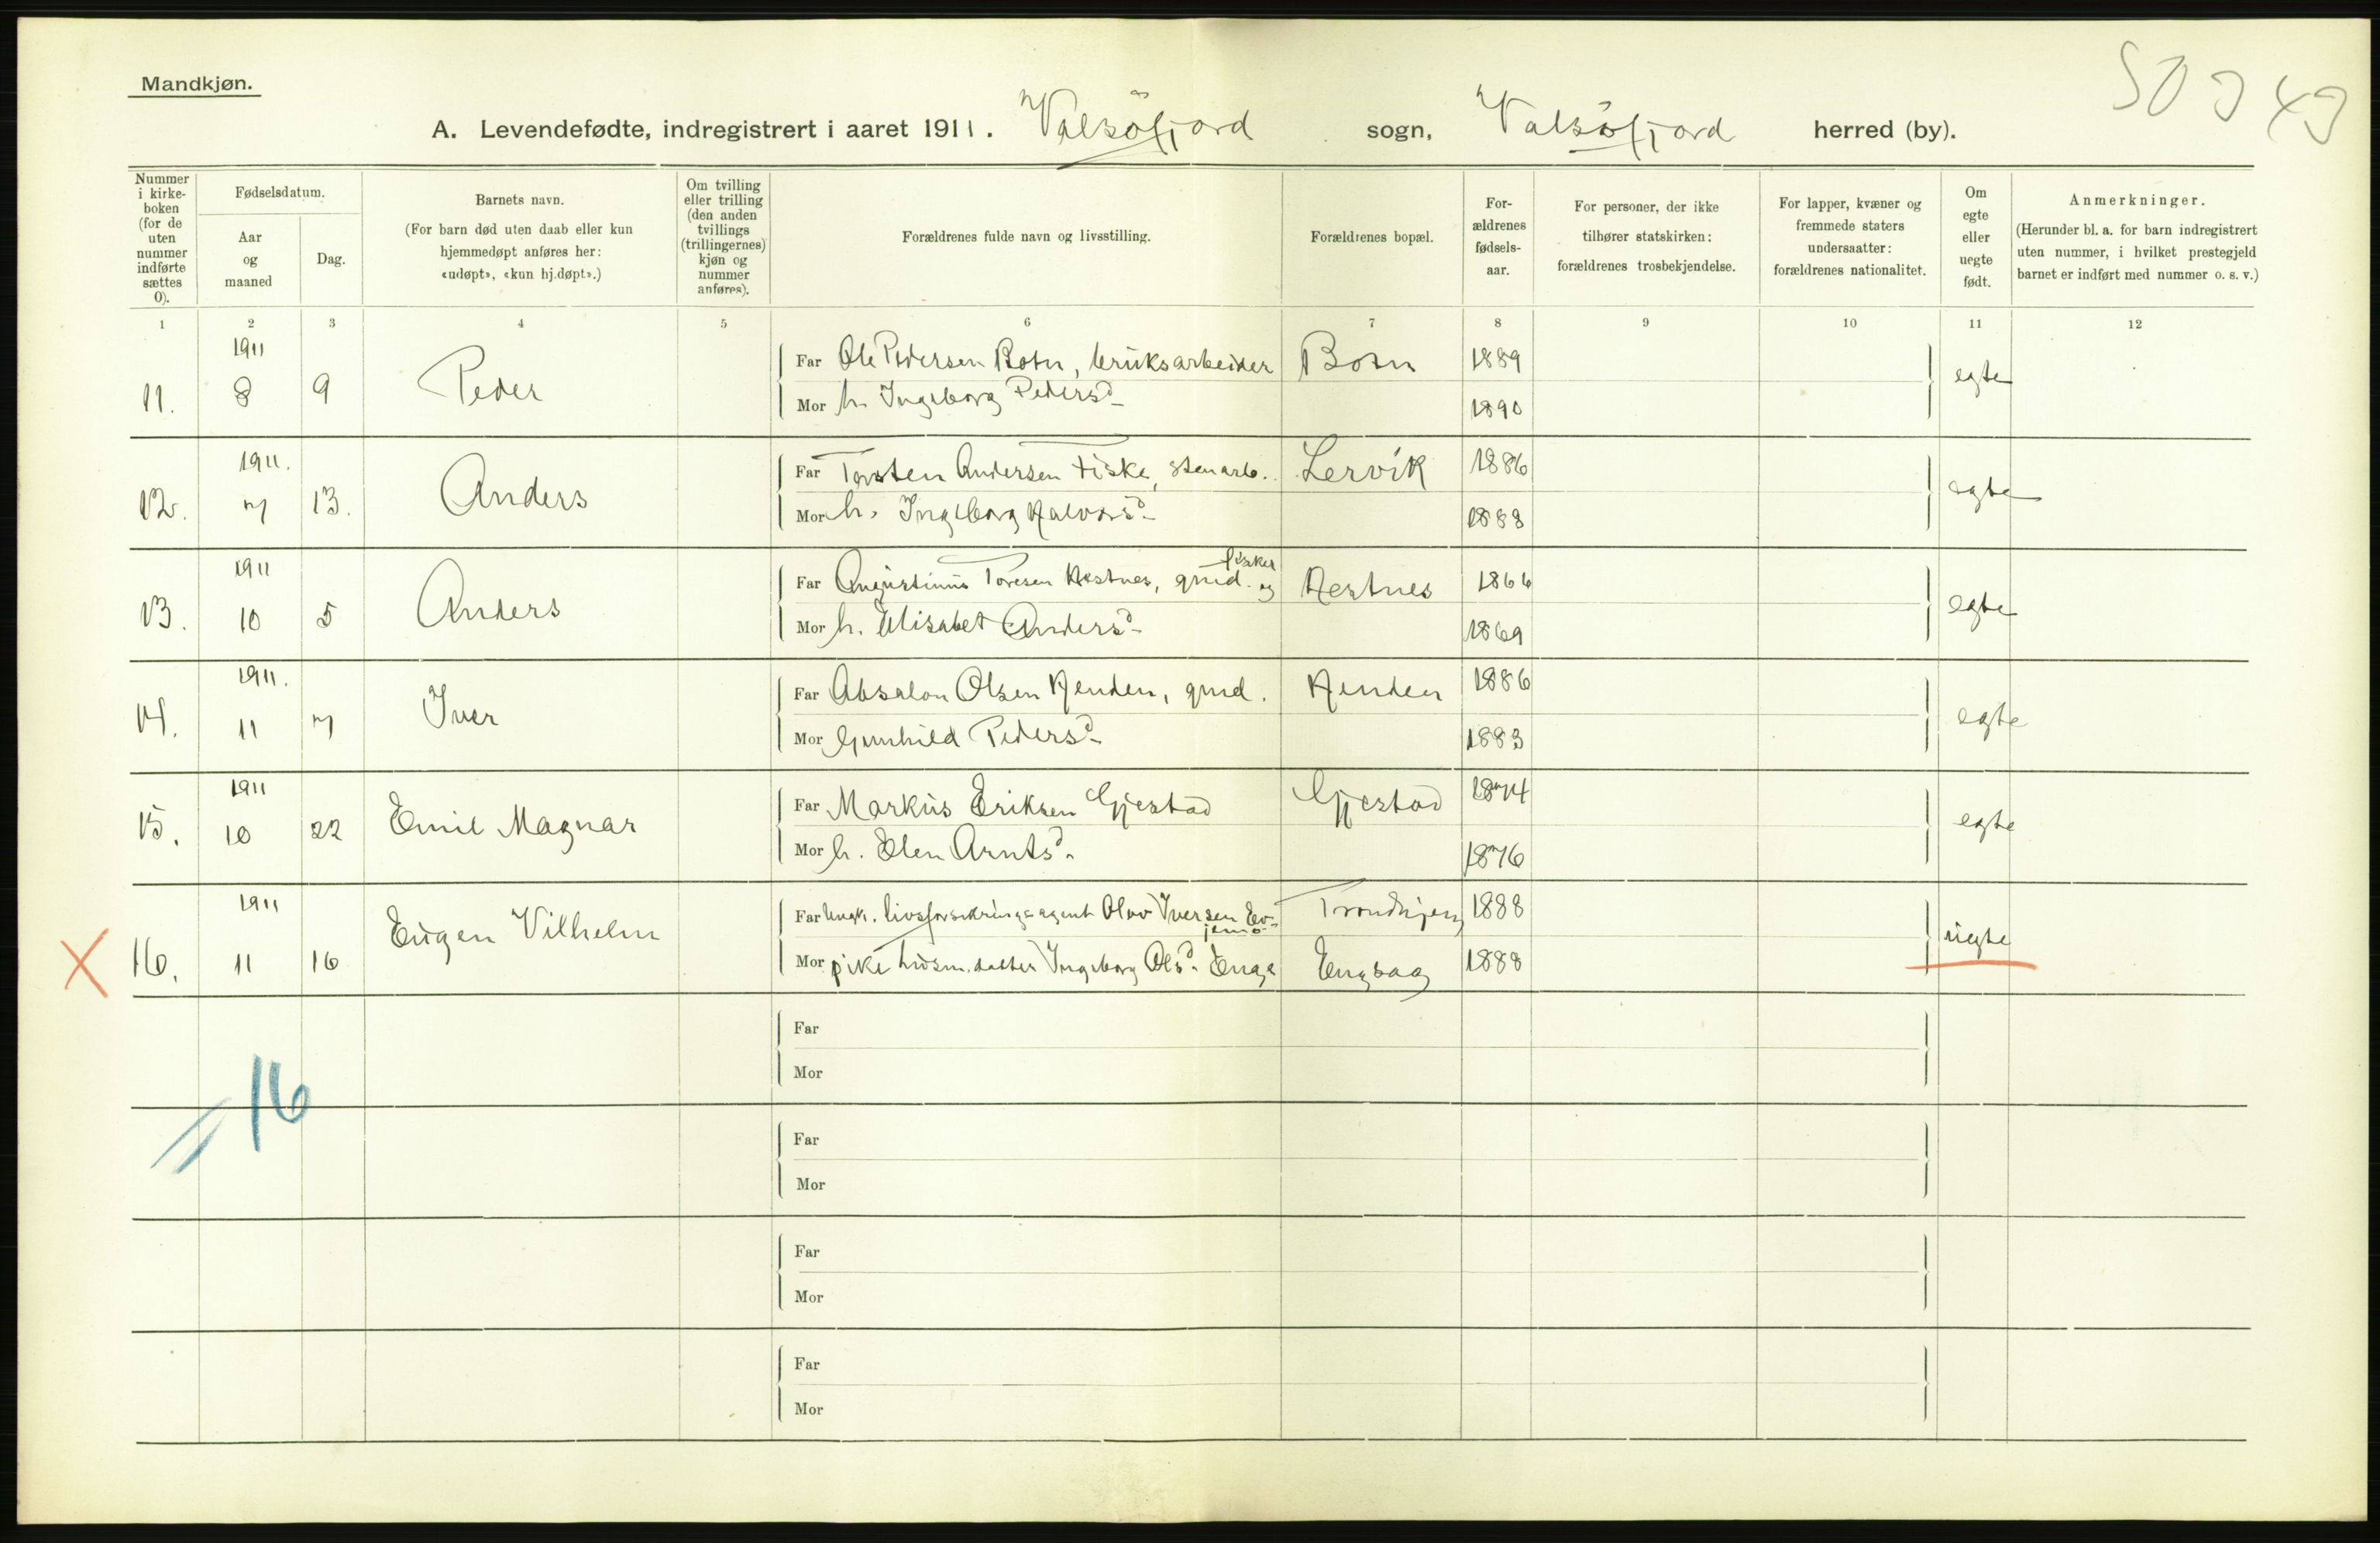 Mandkjøn.
A. Levendefødte, indregistrert i aaret 1911. Valsöfjord sogn, Valsöfjord herred (by).
Nummer i kirke-boken (for de uten nummer indførte sættes 0).
Fødselsdatum.
Aar og maaned
Dag.
Barnets navn.
(For barn død uten daab eller kun hjemmedøpt anføres her: «udøpt», «kun hj.døpt».)
Om tvilling eller trilling (den anden tvillings (trillingernes) kjøn og nummer anføres).
Forældrenes fulde navn og livsstilling.
Forældrenes bopæl.
For-ældrenes fødsels-aar.
For personer, der ikke tilhører statskirken: forældrenes trosbekjendelse.
For lapper, kvæner og fremmede staters undersaatter: forældrenes nationalitet.
Om egte eller uegte født.
Anmerkninger.
(Herunder bl. a. for barn indregistrert uten nummer, i hvilket prestegjeld barnet er indført med nummer o. s. v.)
1 2 3 4 5 6 7 8 9 10 11 12
11. 1911 8 9 Peder
Far Ole Pedersen Botn, bruksarbeider Botn 1889 egte
Mor h. Ingeborg Pedersd 1890
12. 1911. 7 13. Anders
Far Torsten Andersen Fiske, stenarb. Lervik 1886 egte
Mor h. Ingeborg Halvorsd 1888
13. 1911 10 5 Anders
Far Augustinus Toresen Hestnes, grud. og fisker Hestnes 1866 egte
Mor h. Elisabet Andersd 1869
14. 1911. 11 7 Iver
Far Absalon Olsen Henden, grud. Henden 1886 egte
Mor Gunhild Pedersd 1883
15. 1911 10 22 Emil Magnar
Far Markus Eriksen Gjestad Gjestad 1874 egte
Mor h. Elen Arntsd. 1876
16. 1911 11 16 Eugen Vilhelm
Far Ungk. livsforsikringsagent Olav Iversen Trondhjem 1888 uegte
Mor pike husm. datter Ingeborg Olsd. Enge Engsaag 1888
= 16
Far
Mor
Far
Mor
Far
Mor
Far
Mor